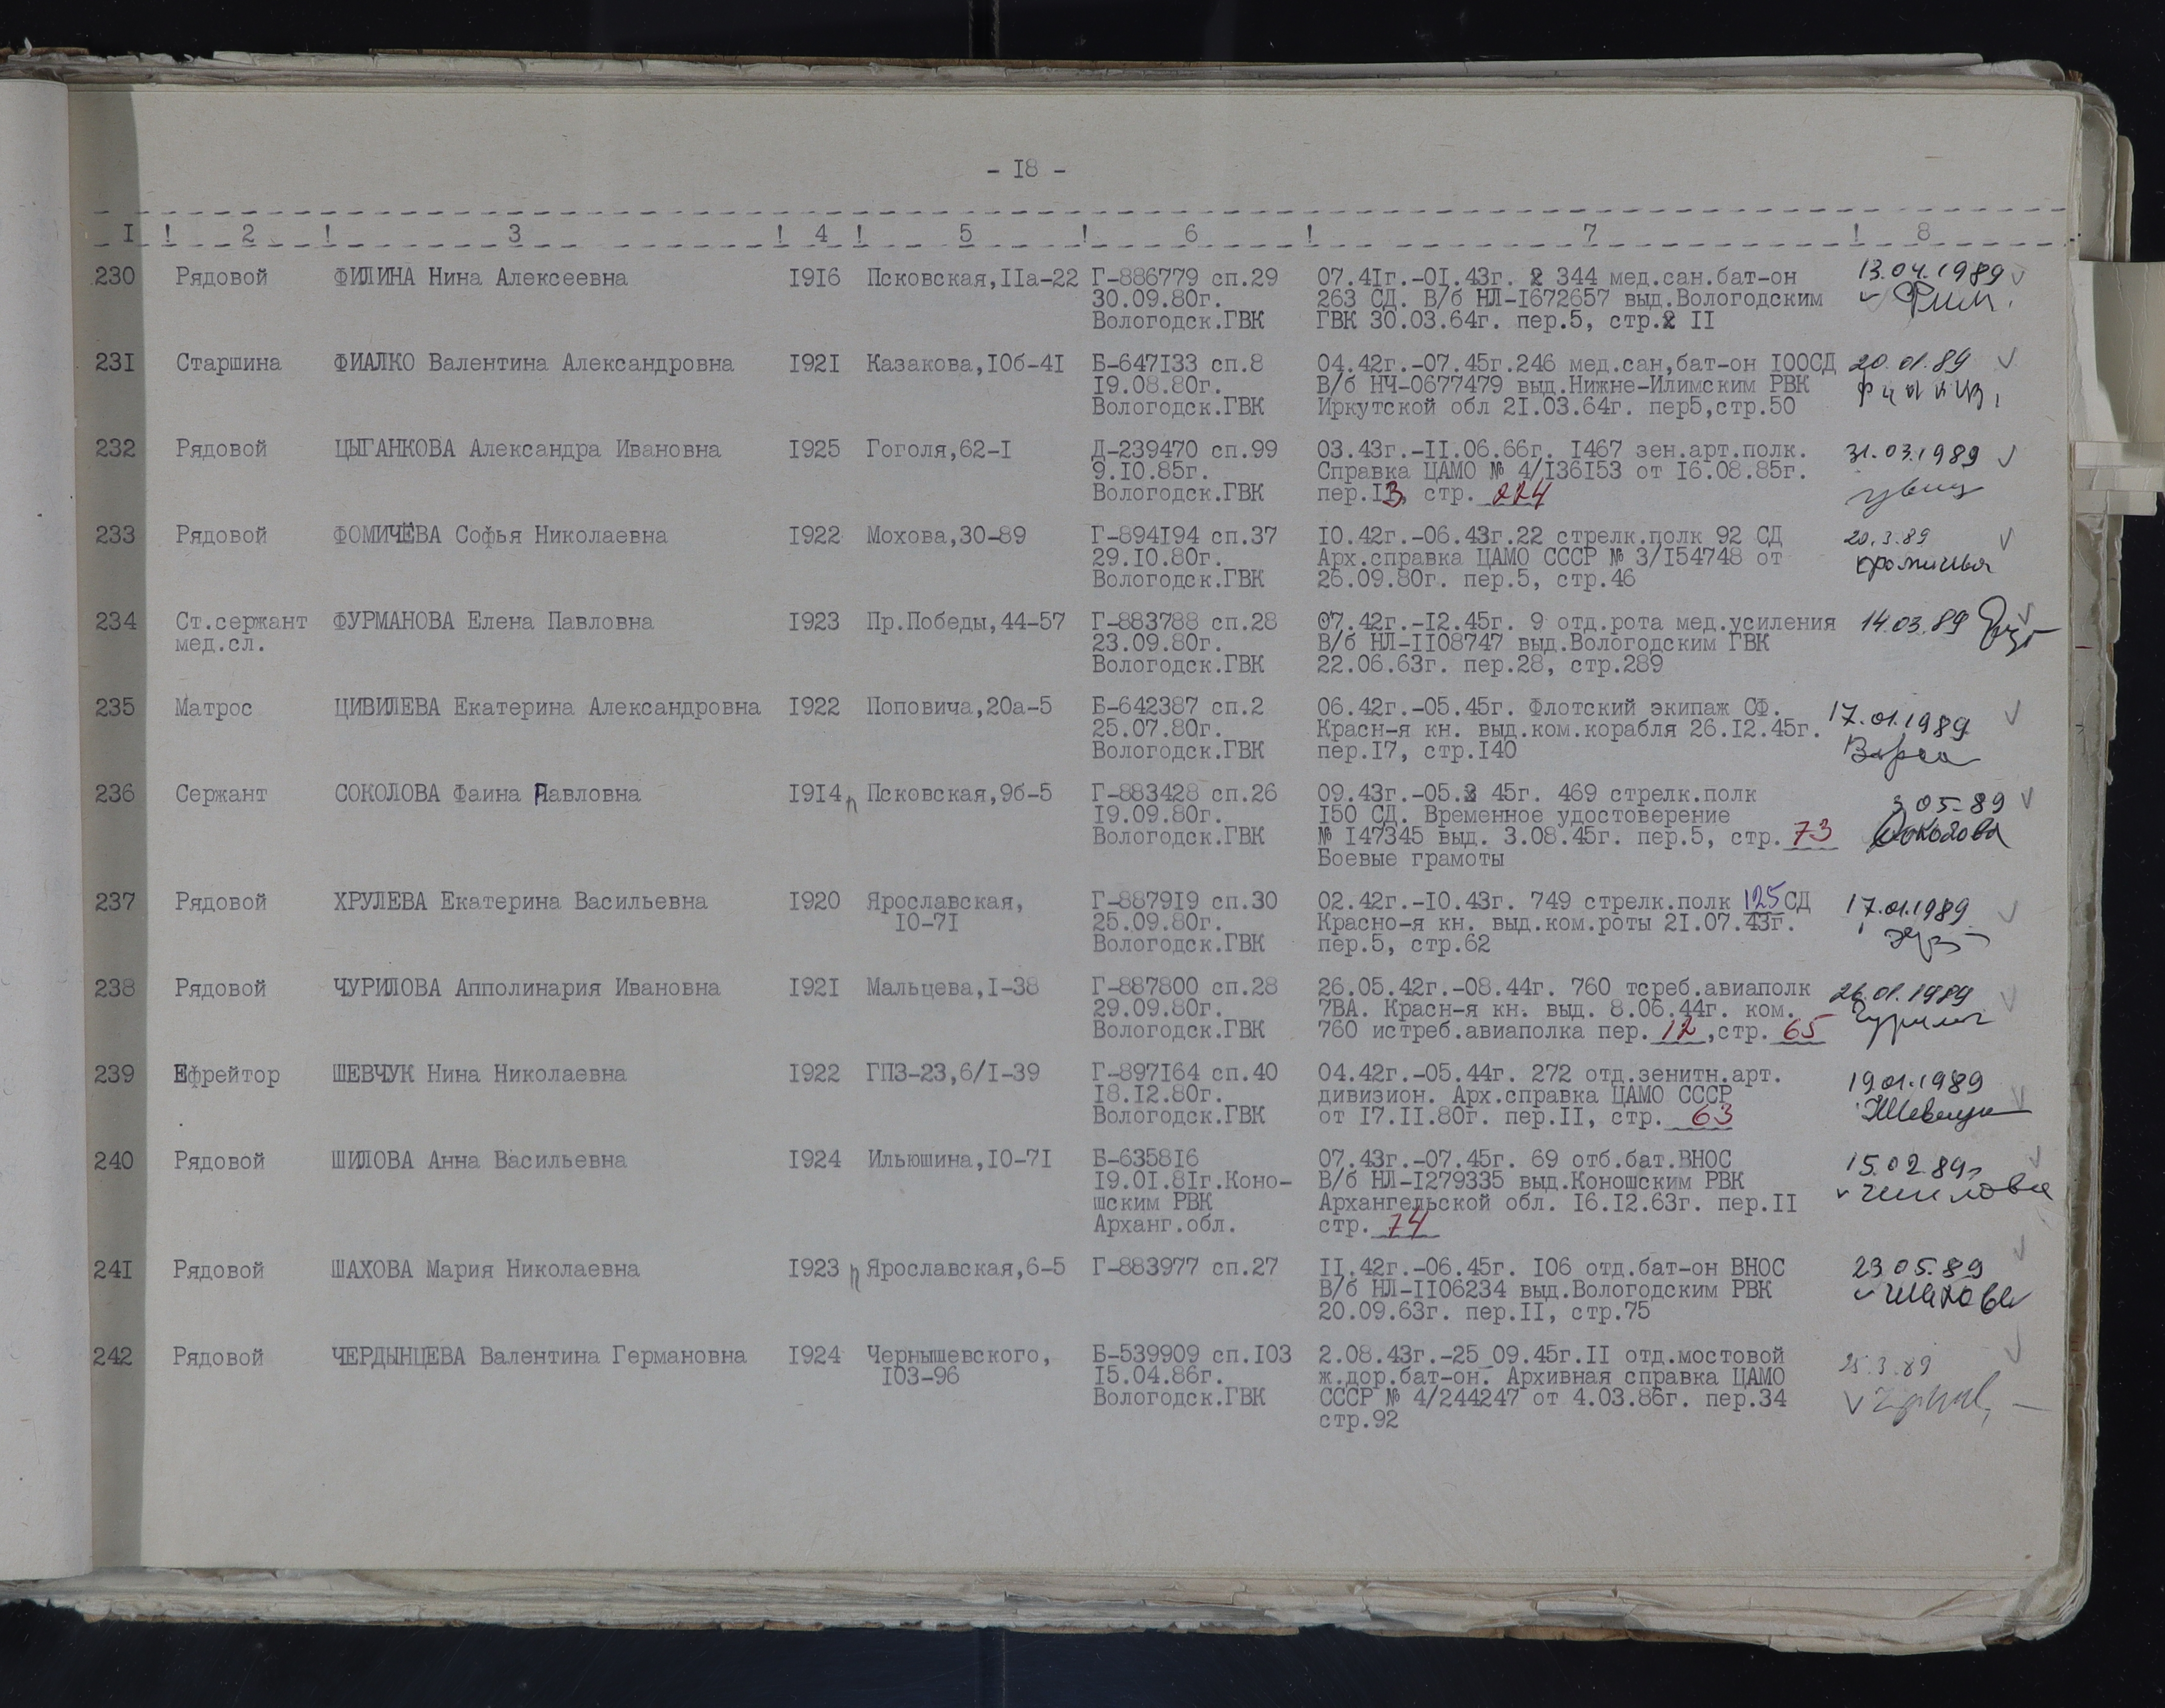 - I8 -
I ! 2 ! 3 ! 4 ! 5 ! 6 ! 7 ! 8
230 Рядовой ФИЛИНА Нина Алексеевна I9I6 Псковская,IIа-22 Г-886779 сп.29 07.4Iг.-0I.43г. 344 мед.сан.бат-он 13.04.1989
30.09.80г. 263 СД. В/б НЛ-I672657 выд.Вологодским
Вологодск.ГВК ГВК 30.03.64г. пер.5, стр. II
23I Старшина ФИАЛКО Валентина Александровна I92I Казакова,I0б-4I Б-647I33 сп.8 04.42г.-07.45г.246 мед.сан,бат-он I00СД 20.01.89
I9.08.80г. В/б НЧ-0677479 выд.Нижне-Илимским РВК
Вологодск.ГВК Иркутской обл 2I.03.64г. пер5,стр.50
232 Рядовой ЦЫГАНКОВА Александра Ивановна I925 Гоголя,62-I Д-239470 сп.99 03.43г.-II.06.66г. I467 зен.арт.полк. 31.03.1989
9.I0.85г. Справка ЦАМО № 4/I36I53 от I6.08.85г.
Вологодск.ГВК пер.I3, стр. 224
233 Рядовой ФОМИЧЁВА Софья Николаевна I922 Мохова,30-89 Г-894I94 сп.37 I0.42г.-06.43г.22 стрелк.полк 92 СД 20.3.89
29.I0.80г. Арх.справка ЦАМО СССР № 3/I54748 от
Вологодск.ГВК 26.09.80г. пер.5, стр.46
234 Ст.сержант ФУРМАНОВА Елена Павловна I923 Пр.Победы,44-57 Г-883788 сп.28 07.42г.-I2.45г. 9 отд.рота мед.усиления 14.03.89
мед.сл. 23.09.80г. В/б НЛ-II08747 выд.Вологодским ГВК
Вологодск.ГВК 22.06.63г. пер.28, стр.289
235 Матрос ЦИВИЛЕВА Екатерина Александровна I922 Поповича,20а-5 Б-642387 сп.2 06.42г.-05.45г. Флотский экипаж СФ. 17.01.1989
25.07.80г. Красн-я кн. выд.ком.корабля 26.I2.45г.
Вологодск.ГВК пер.I7, стр.I40
236 Сержант СОКОЛОВА Фаина Павловна I9I4 Псковская,9б-5 Г-883428 сп.26 09.43г.-05. 45г. 469 стрелк.полк 3 05-89
I9.09.80г. I50 СД. Временное удостоверение
Вологодск.ГВК № I47345 выд. 3.08.45г. пер.5, стр. 73 Соколова
Боевые грамоты
237 Рядовой ХРУЛЕВА Екатерина Васильевна I920 Ярославская, Г-8879I9 сп.30 02.42г.-I0.43г. 749 стрелк.полк 125 СД 17.01.1989
I0-7I 25.09.80г. Красно-я кн. выд.ком.роты 2I.07.43г.
Вологодск.ГВК пер.5, стр.62
238 Рядовой ЧУРИЛОВА Апполинария Ивановна I92I Мальцева,I-38 Г-887800 сп.28 26.05.42г.-08.44г. 760 тсреб.авиаполк 26.01.1989
29.09.80г. 7ВА. Красн-я кн. выд. 8.06.44г. ком.
Вологодск.ГВК 760 истреб.авиаполка пер. 12 ,стр. 65
239 Ефрейтор ШЕВЧУК Нина Николаевна I922 ГПЗ-23,6/I-39 Г-897I64 сп.40 04.42г.-05.44г. 272 отд.зенитн.арт. 19.01.1989
I8.I2.80г. дивизион. Арх.справка ЦАМО СССР
Вологодск.ГВК от I7.II.80г. пер.II, стр. 63 Шевчук
240 Рядовой ШИЛОВА Анна Васильевна I924 Ильюшина,I0-7I Б-6358I6 07.43г.-07.45г. 69 отб.бат.ВНОС 15.02.89г
I9.0I.8Iг.Коно- В/б НЛ-I279335 выд.Коношским РВК Шилова
шским РВК Архангельской обл. I6.I2.63г. пер.II
Арханг.обл. стр. 74
24I Рядовой ШАХОВА Мария Николаевна I923 Ярославская,6-5 Г-883977 сп.27 II.42г.-06.45г. I06 отд.бат-он ВНОС 23 05.89
В/б НЛ-II06234 выд.Вологодским РВК Шахова
20.09.63г. пер.II, стр.75
242 Рядовой ЧЕРДЫНЦЕВА Валентина Германовна I924 Чернышевского, Б-539909 сп.I03 2.08.43г.-25 09.45г.II отд.мостовой 25.3.89
I03-96 I5.04.86г. ж.дор.бат-он. Архивная справка ЦАМО
Вологодск.ГВК СССР № 4/244247 от 4.03.86г. пер.34
стр.92